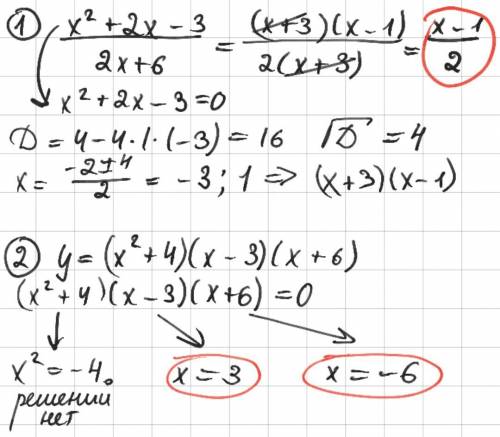 ① (x² + 2x − 3)/(2x + 6) = ((x+3)(x−1))/(2(x+3)) = (x−1)/2
x² + 2x − 3 = 0
D = 4 − 4·1·(−3) = 16 √D = 4
x = (−2±4)/2 = −3; 1 ⇒ (x+3)(x−1)
② y = (x² + 4)(x − 3)(x + 6)
(x² + 4)(x − 3)(x + 6) = 0
x² = −4. x = 3 x = −6
решений
нет